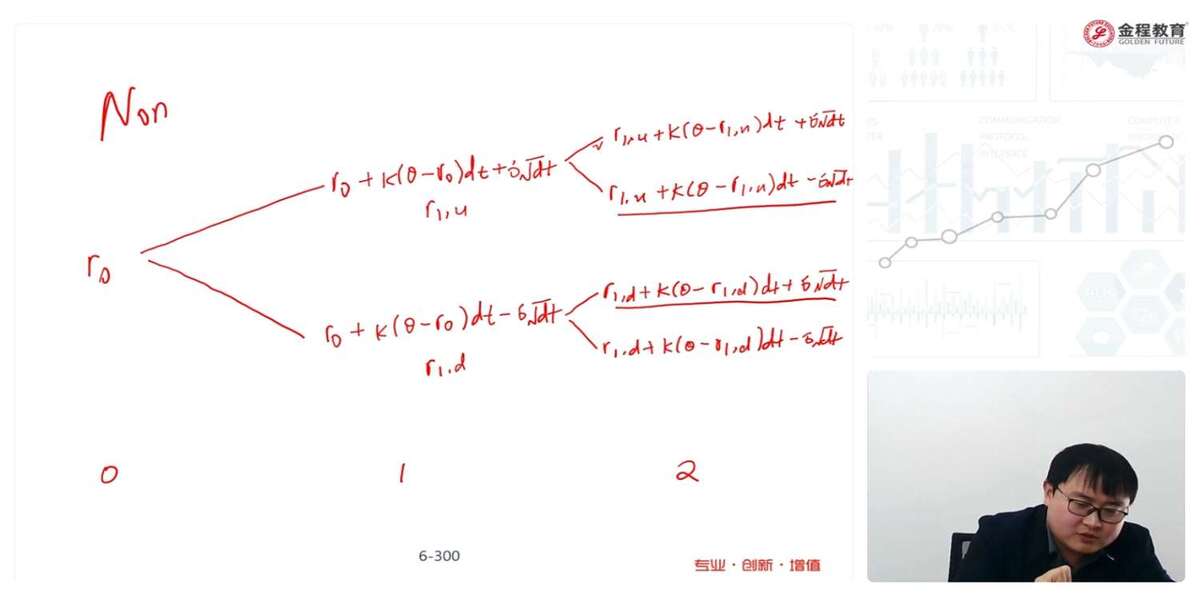 金程教育
GOLDEN FUTURE
Non
r₀
r₀ + k(θ-r₀)dt + σ√dt
r₁,u
r₀ + k(θ-r₀)dt - σ√dt
r₁,d
r₁,u + k(θ-r₁,u)dt + σ√dt
r₁,u + k(θ-r₁,u)dt - σ√dt
r₁,d + k(θ-r₁,d)dt + σ√dt
r₁,d + k(θ-r₁,d)dt - σ√dt
0 1 2
6-300
专业·创新·增值